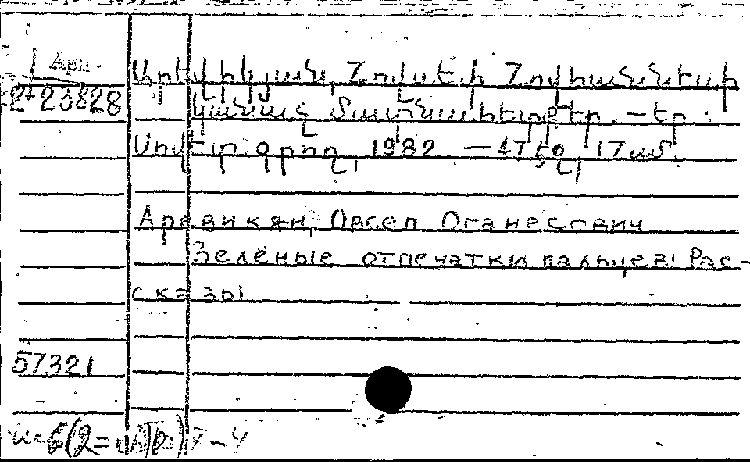 Արևիկյան, Հովսեփ Հովհաննեսի
2-23828
Կանաչ մատնահետքեր. – Եր.:
Սովետ. գրող, 1982 – 47 էջ, 17 սմ.
Аревикян, Овсеп Оганесович
Зелёные отпечатки пальцев: Рас-
сказы
57321